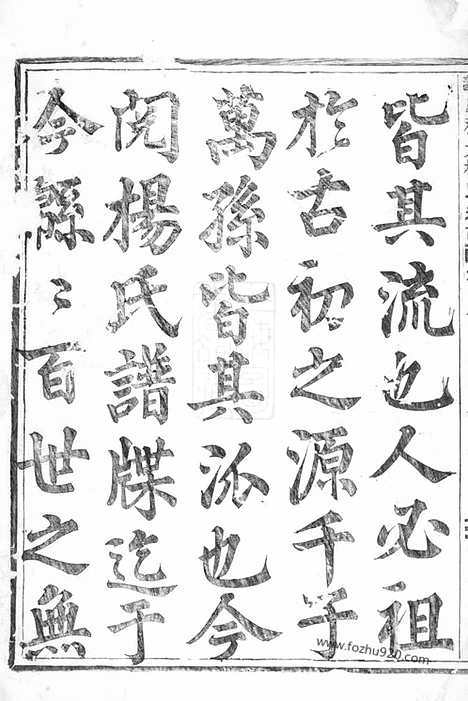 皆其流也人必祖
於古初之源千子
萬孫皆其派也今
閱楊氏譜牒迄于
今緜〻百世之無
www.fozhu920.com